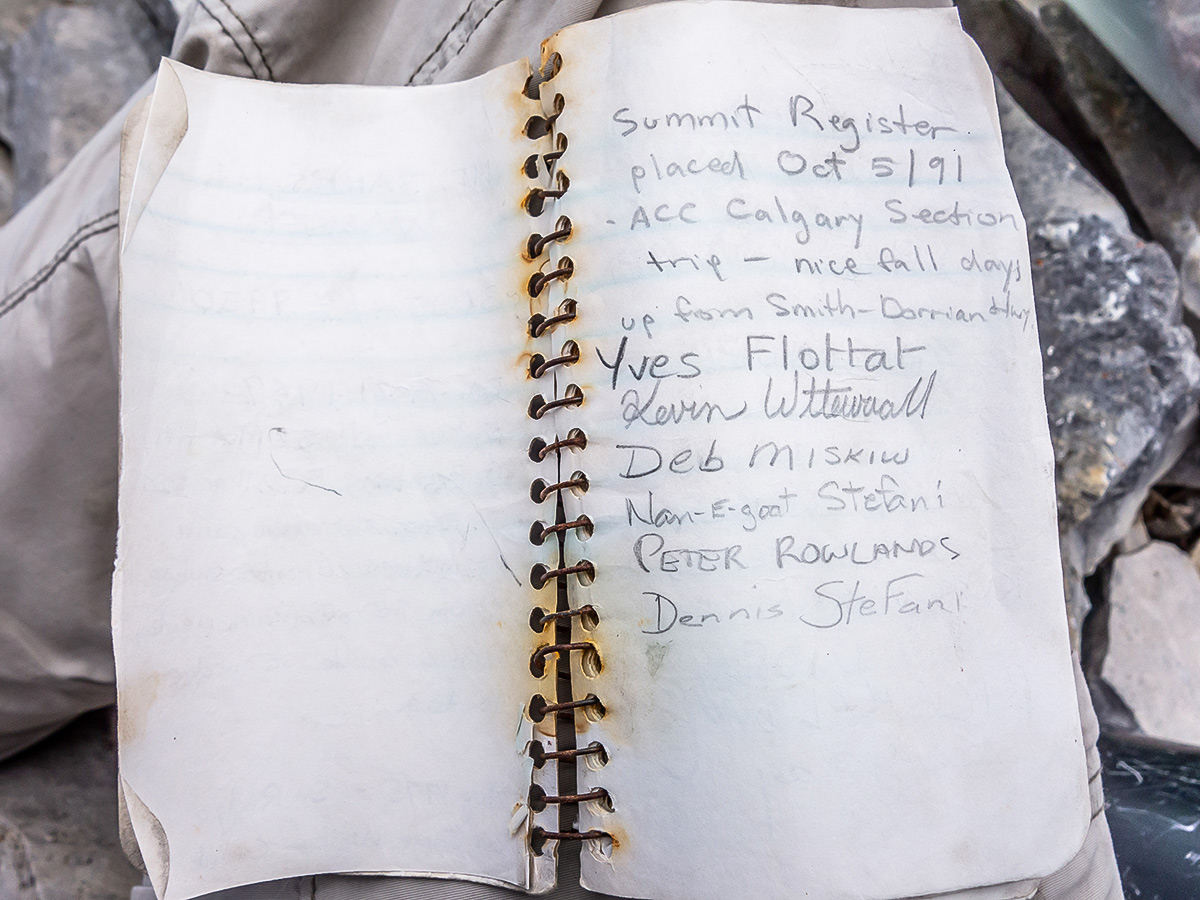 Summit Register
placed Oct 5/91
- ACC Calgary Section
trip – nice fall days
up from Smith-Dorrian Hwy
Yves Flottat
Kevin
Deb Miskiw
Nan-E-goat Stefani
PETER ROWLANDS
Dennis Stefani